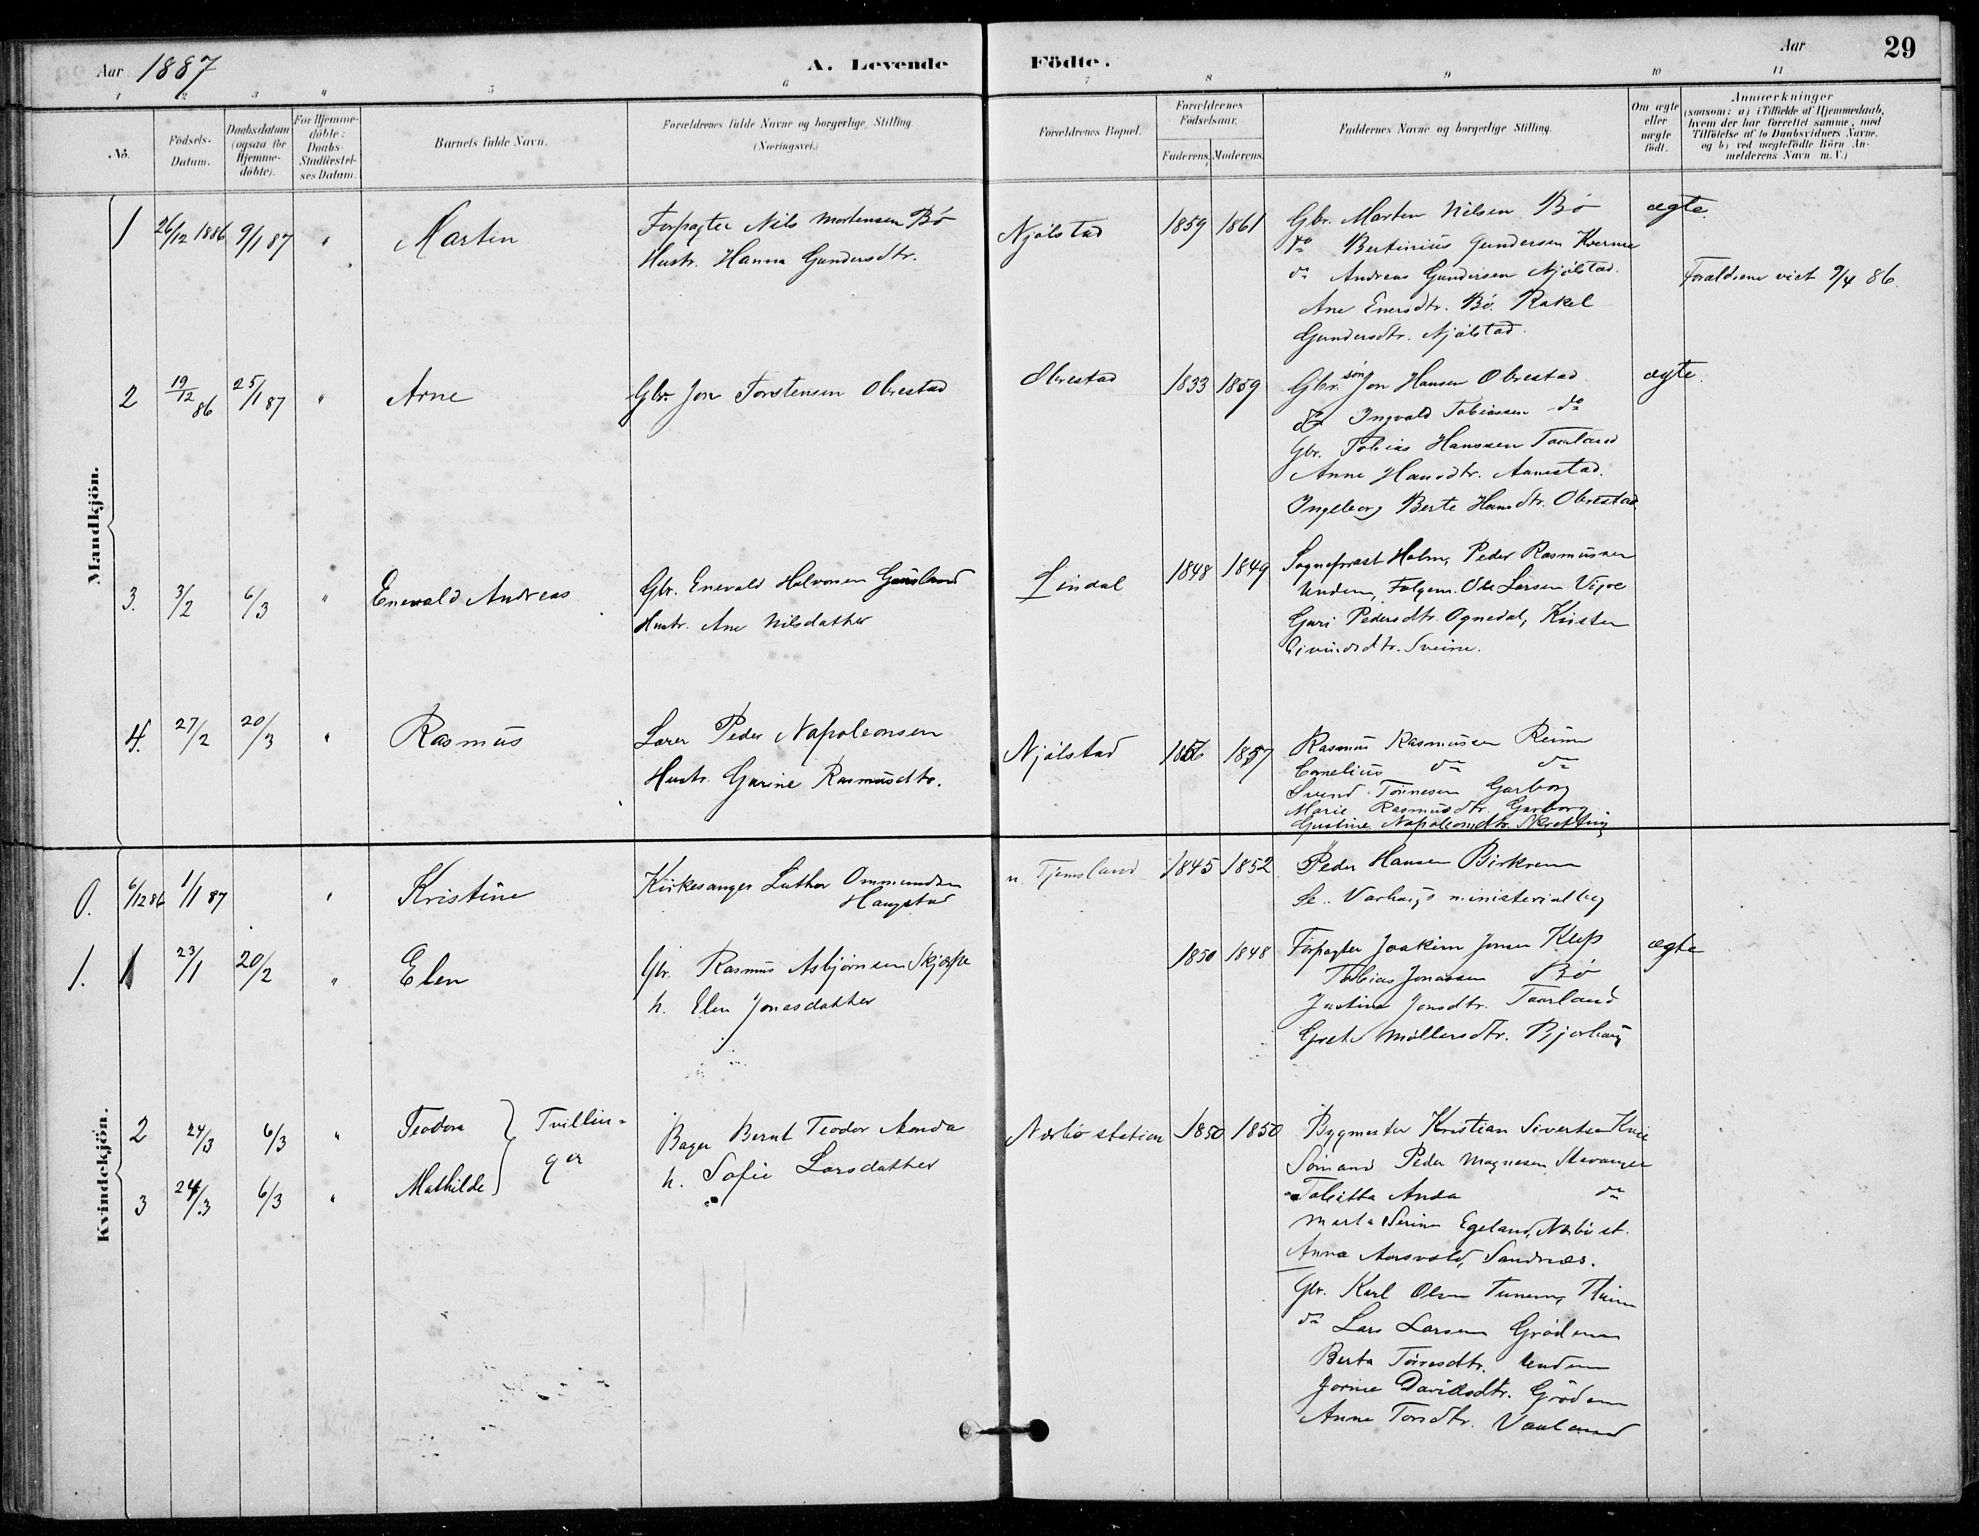 Aar 1887
A. Levende Födte.
Aar 29
1 2 3 4 5 6 7 8 9 10 11
No.
Födsels-Datum.
Daabsdatum (ogsaa for Hjemme-döbte).
For Hjemme-döbte: Daabs-Stadfæstel-ses Datum.
Barnets fulde Navn.
Forældrenes fulde Navne og borgerlige Stilling. (Næringsvei.)
Forældrenes Bopæl.
Forældrenes Födselsaar.
Faderens. Moderens.
Faddernes Navne og borgerlige Stilling.
Om ægte eller uægte födt.
Anmærkninger
(saasom: a) i Tilfælde af Hjemmedaab, hvem der har forrettet samme, med Tilföielse af to Daabsvidners Navne, og b) ved uægtefödte Börn Anmelderens Navn m. V.)
Mandkjön.
1 26/12 1886 9/1 87 " Martin
Forpagter Nils Mortensen Bö
Hustr. Hanna Gundersdtr.
Njölstad 1859 1861
Gbr. Morten Nilsen Bö
do Bertinius Gundersen Kverme
do Andreas Gundersen Njölstad.
Ane Enersdtr. Bö. Rakel
Gundersdtr. Njölstad.
ægte.
Foraldrene viet 9/4 86.
2 19/12 86 25/1 87 " Arne
Gbr. Jon Torstensen Obrestad
Obrestad 1833 1859
Gbr. sön Jon Hansen Obrestad
do Ingvald Tobiassen do
Gbr. Tobias Hanssen Taarland
Anne Hansdtr. Aanestad.
Ingeborg Berte Hansdtr. Obrestad
ægte.
3. 3/2 6/3 " Enevald Andreas
Gbr. Enevald Halvorsen
Hustr. Ane Nilsdatter
Lindal 1848 1849
Sogneprest Holm, Peder Rasmussen
Undem, Folgem. Ole Larsen Vigre
Guri Pedersdtr. Ognedal, Kristen
Eivindsdtr. Sveine.
4. 27/2 20/3 " Rasmus
Lærer Peder Napoleonsen
Hustr. Garine Rasmusdtr.
Njölstad 1856 1857
Rasmus Rasmussen Reime
Cornelius do do
Svend Tönnesen Garborg
Marie Rasmusdtr. Garborg
Gustine Napoleonsdtr. Skretting
Kvindekjön.
0. 6/12 86 1/1 87 " Kristine
Kirkesanger Luthor Ommundsen
Haugstad
n. Tjemsland 1845 1852
Peder Hansen Birkrem
Se.. Varhaugs ministerialbog
1. 1 23/1 20/2 " Elen
Gbr. Rasmus Asbjörnsen Skjærpe
h. Elen Jonasdatter
1850 1848
Forpagter Joakim Jonsen Klep
Tobias Jonassen Bö
Justine Jonsdtr. Taarland
Grete Möllersdtr. Bjorhaug
ægte
2 24/3 6/3 " Teodora } Tvillin-
3 24/3 6/3 " Mathilde } ger
Bager Bernt Teodor Aanda
h. Sofie Larsdatter
Nærbö station 1850 1850
Bygmester Kristian Sivertsen
Sömand Peder Magnesen, Stavanger
Tabitta Anda do
Marta Serine Egeland, Nærbö st.
Anna Aarsvold, Sandnæs.
Gbr. Karl Olsen Tunem, Thime
do Lars Larsen Grödem
Berta Törresdtr. Undem
Jorine Davidsdtr. Grödem
Anne Torsdtr. Vaaland